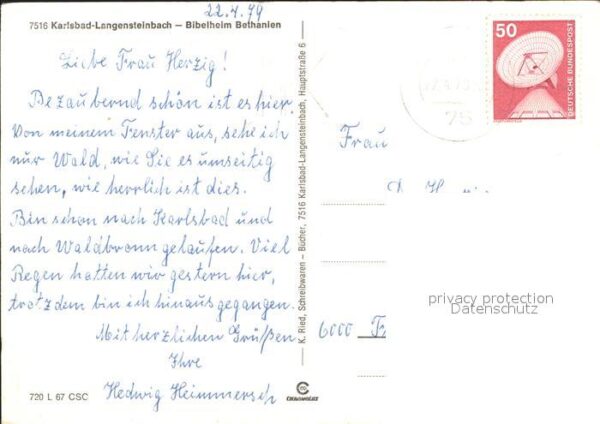 22.4.79
7516 Karlsbad-Langensteinbach — Bibelheim Bethanien
Liebe Frau Herzig!
Bezaubernd schön ist es hier.
Von meinem Fenster aus, sehe ich
nur Wald, wie Sie es umseitig
sehen, wie herrlich ist dies.
Bin schon nach Karlsbad und
nach Waldbronn gelaufen. Viel
Regen hatten wir gestern hier,
trotzdem bin ich hinausgegangen.
Mit herzlichen Grüßen
Ihre
Hedwig Heimmersch
720 L 67 CSC
K. Ried, Schreibwaren – Bücher, 7516 Karlsbad-Langensteinbach, Hauptstraße 6
50
DEUTSCHE BUNDESPOST
75
Frau
6000 F
privacy protection
Datenschutz